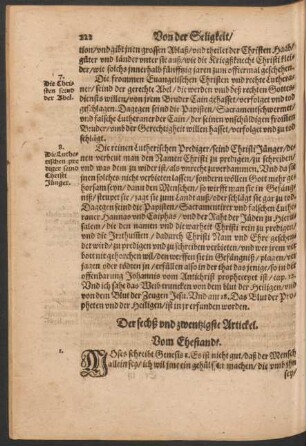 222 Von der Seligkeit/
tion/vnd gibt jn ten grossen Ablaß/vnd theilet der Christen Haab/
güter vnd länder vnter sie auß/wie die Kriegßknecht Christi klei
der/wie solchs innerhalb fünfftzig jaren zum offtermal geschehen.
7.
Die Chri
sten seind
der Abel.
Die frommen Euangelischen Christen vnd rechte Luthera-
ner/seind der gerechte Abel/die do werden vmb rechts Gottes
diensts willen/von jrem Bruder Cain gehasset/verfolget vnd tod
geschlagen. Dagegen seind die Papisten/Sacramentschwermer
vnd falsche Lutheraner der Cain/der seinen vnschüldigen frommen
Bruder/vmb der Gerechtigkeit willen hasset/verfolget vnd tod
schlägt.
8.
Die Luthe-
rischen pre
diger seind
Christi
Jünger.
Die reinen Lutherischen Prediger/seind Christi Jünger/de-
nen verbeut man den Namen Christi zu predigen/zu schreiben
vnd was dem zu wider ist zu verwerffen/ Vnd da sie
jnen solches nicht verbieten lassen/sondern wöllen Gott mehr ge-
horsam seyn/dann den Menschen/so wirfft man sie in Gefäng-
niß/steupet sie/jagt sie zum Land auß/oder schlägt sie gar zu tod.
Dagegen seind die Papisten/Sacramentirer vnd falschen Luthe-
raner Hannas vnd Caiphas/vnd der Raht der Jüden zu Hierusa-
lem/die den Namen vnd die warheit Christi rein zu predigen/
vnd die Jrrthumen/dadurch Christi Nam vnd Ehre geschendet
wird/zu predigen vnd zu schreiben verbieten/vnd wer jnen
nit gehorchen wil/den werffen sie in Gefängniß/oder
verfolgen/vnd tödten sie
offenbarung Johannis vom Antichrist propheceyet ist/cap. 17.
Vnd ich sahe das Weib truncken von dem blut der Heiligen/vnd
von dem Blut der Zeugen Jesu. Vnd am 18. Das Blut der Pro
pheten vnd der Heiligen/ist in jr erfunden worden.
Der sechß vnd zwentzigste Artickel.
Vom Ehestandt.
1.
MOses schreibt Genesis 2. Es ist nicht gut/daß der Mensch
allein sey/ich wil jme ein gehülffen machen/die vmb jhn
sey/